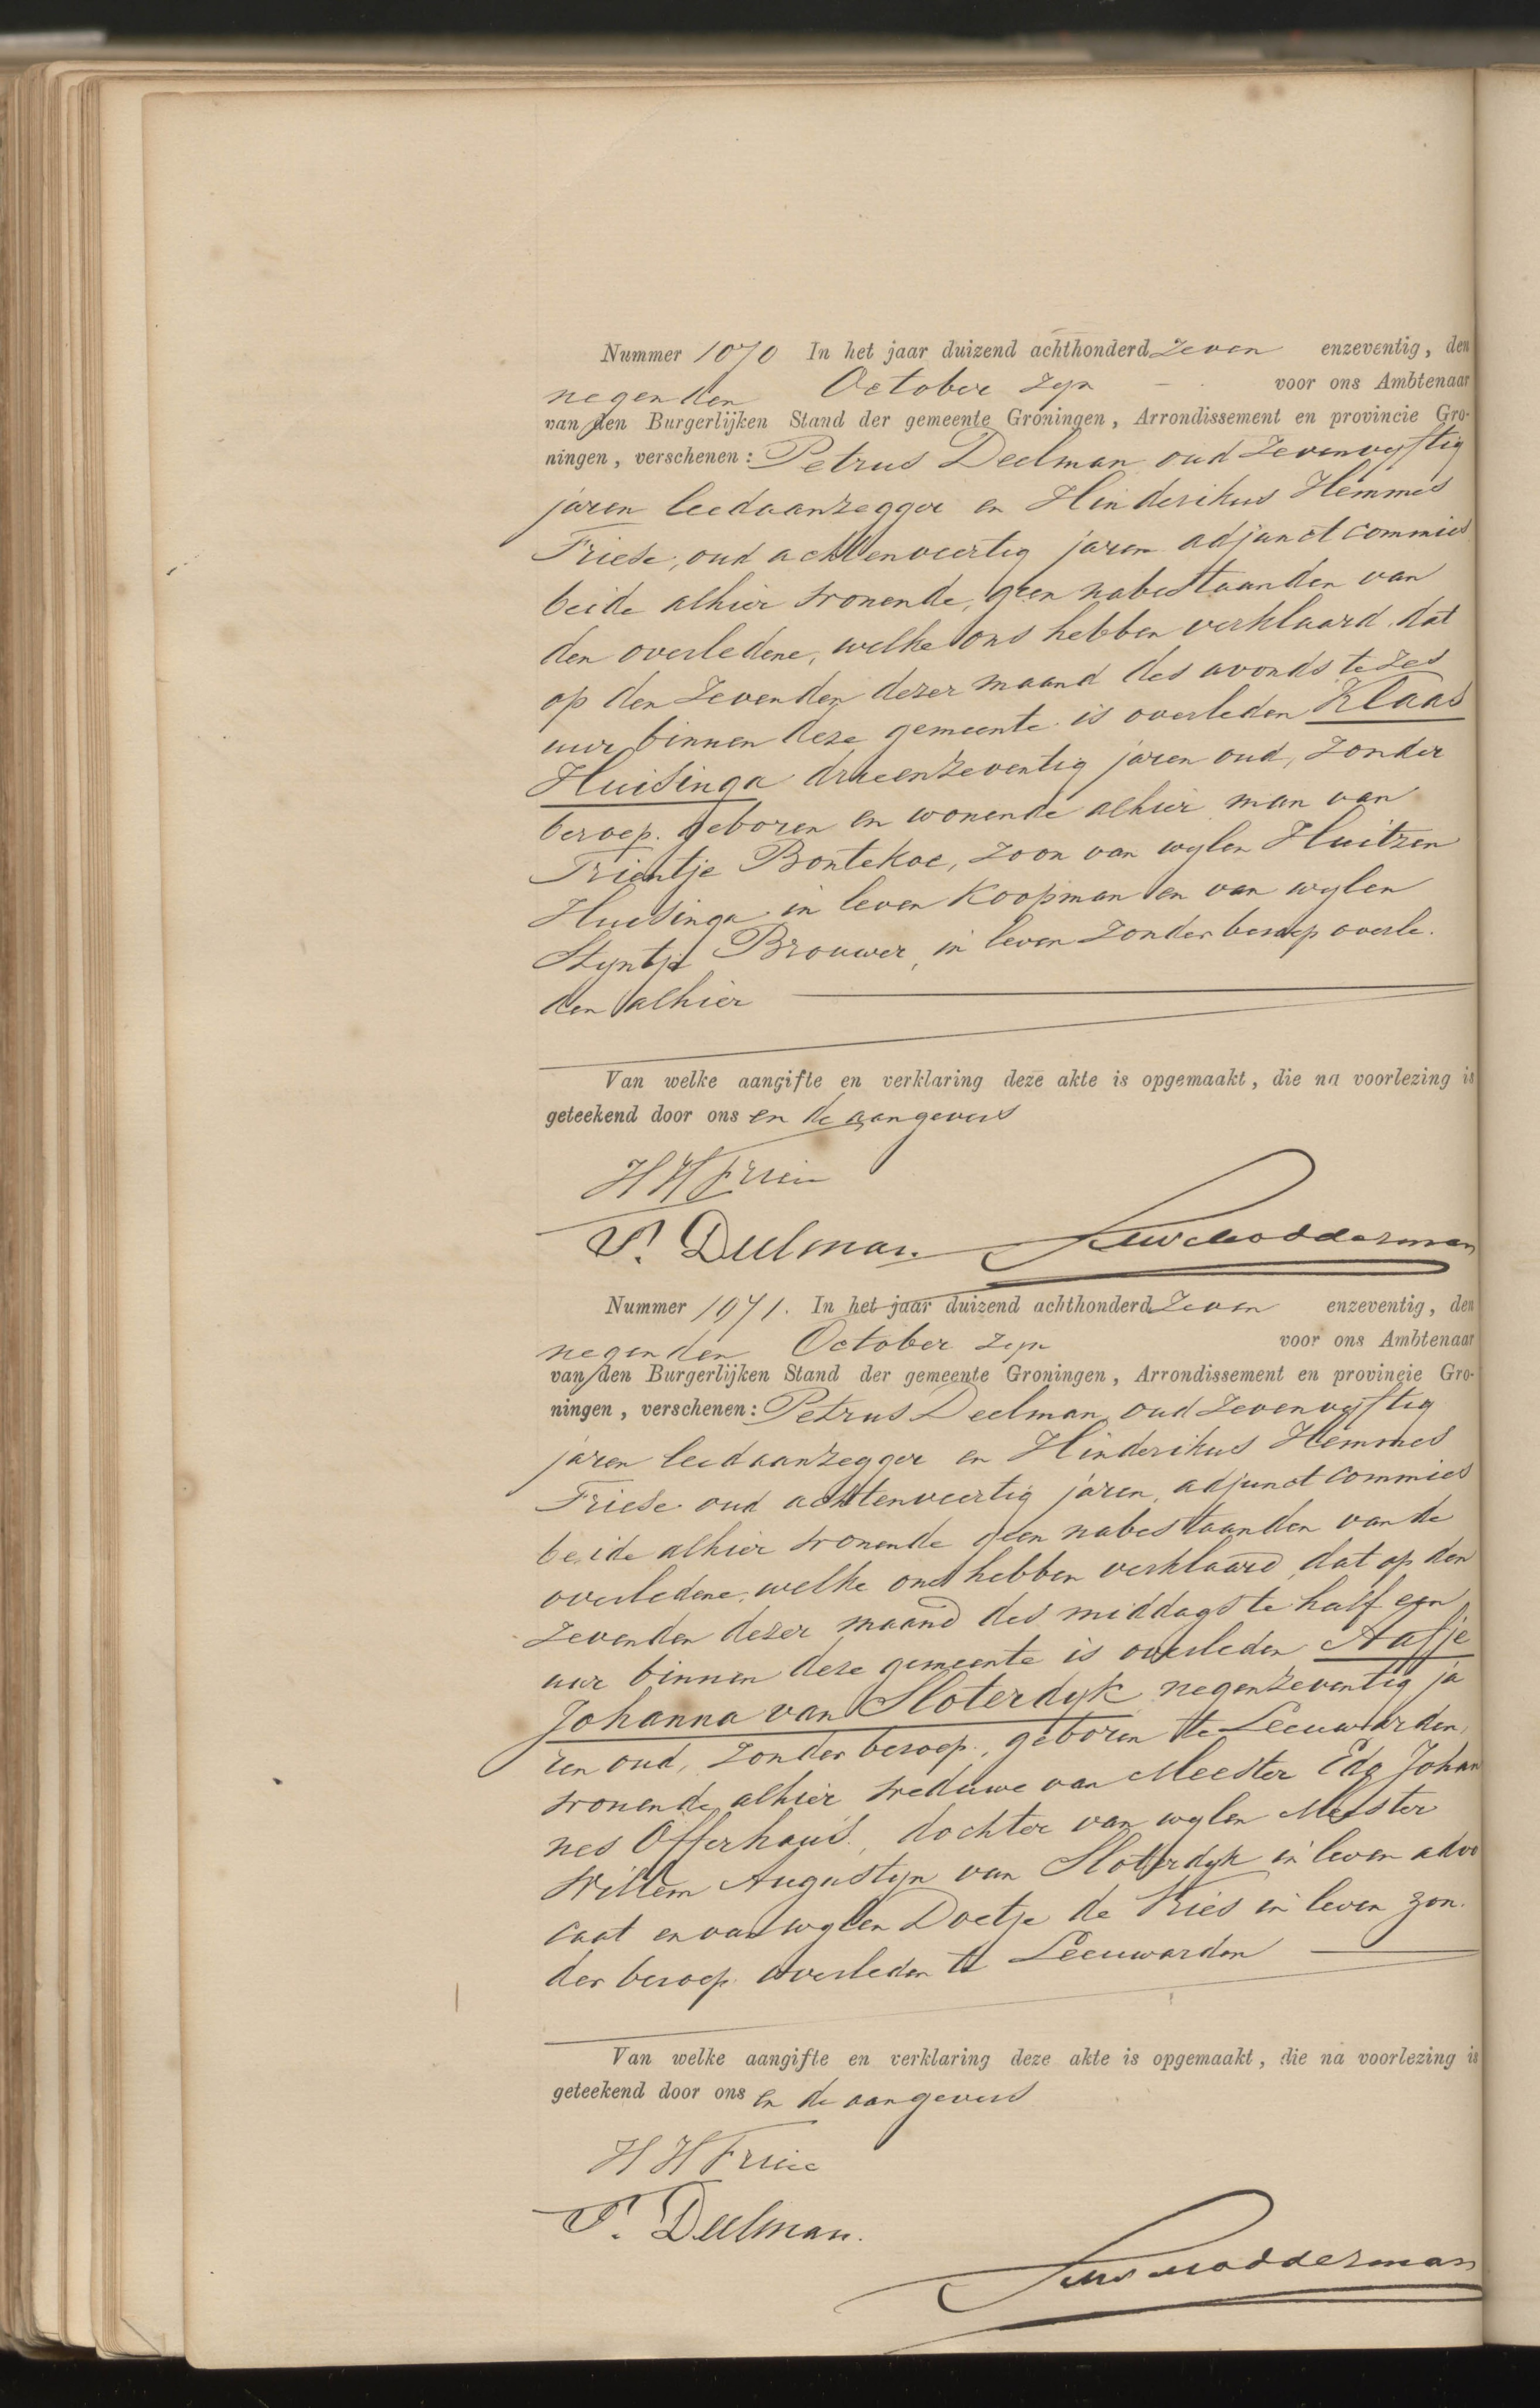 Nummer 1070 In het jaar duizend achthonderd zeven enzeventig, den
negenden October zyn voor ons Ambtenaar
van den Burgerlijken Stand der gemeente Groningen, Arrondissement en provincie Gro-
ningen, verschenen: Petrus Deelman oud zevenvyftig
jaren leedaanzegger en Hinderikus Hemmes
Friese, oud achtenveertig jaren adjunct commies
beide alhier wonende, geen nabestaanden van
den overledene, welke ons hebben verklaard dat
op den zevenden dezer maand des avonds te zes
uur binnen deze gemeente is overleden Klaas
Huisinga drieenzeventig jaren oud, zonder
beroep. geboren en wonende alhier man van
Trientje Bontekoe, zoon van wylen Huitzen
Huisinga in leven Koopman en van wylen
Styntje Brouwer, in leven zonder beroep overle-
den alhier
Van welke aangifte en verklaring deze akte is opgemaakt, die na voorlezing is
geteekend door ons en de aangevers
H H Friese
P. Deelman. Modderman
Nummer 1071. In het jaar duizend achthonderd zeven enzeventig, den
negenden October zyn voor ons Ambtenaar
van den Burgerlijken Stand der gemeente Groningen, Arrondissement en provincie Gro-
ningen, verschenen: Petrus Deelman, oud zevenvyftig
jaren leedaanzegger en Hinderikus Hemmes
Friese oud achtenveertig jaren, adjunct commies
beide alhier wonende geen nabestaanden van de
overledene, welke ons hebben verklaard dat op den
zevenden dezer maand des middags te half een
uur binnen deze gemeente is overleden Aafje
Johanna van Sloterdyk negenzeventig ja
ren oud, zonder beroep, geboren te Leeuwarden,
wonende alhier weduwe van Meester Edo Johan
nes Offerhaus, dochter van wylen Meester
Willem Augustyn van Sloterdyk in leven advo
caat en van wylen Doetje de Kies in leven zon-
der beroep overleden te Leeuwarden
Van welke aangifte en verklaring deze akte is opgemaakt, die na voorlezing is
geteekend door ons en de aangevers
H H Friese
P. Deelman.
Modderman